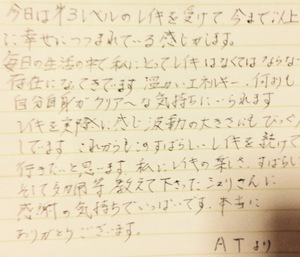 今日は第3レベルのレイキを受けて今まで以上
に幸せにつつまれている感じがします。
毎日の生活の中で私にとってレイキはなくてはならない
存在になってきてます 温かいエネルギー、何よりも
自分自身がクリアーな気持ちにいられます
レイキを実際に感じ波動の大きさにもびっくり
してます これからもこのすばらしいレイキを続けて
行きたいと思います。私にレイキの楽しさ、すばらし
そして効用等教えて下さったシェリさんに
感謝の気持ちでいっぱいです、本当に
ありがとうございます。
ATより